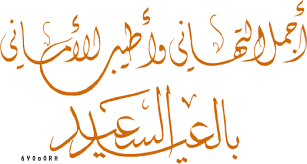 أجمل التهاني وأطيب الأماني
بالعيد السعيد
6YOoORH